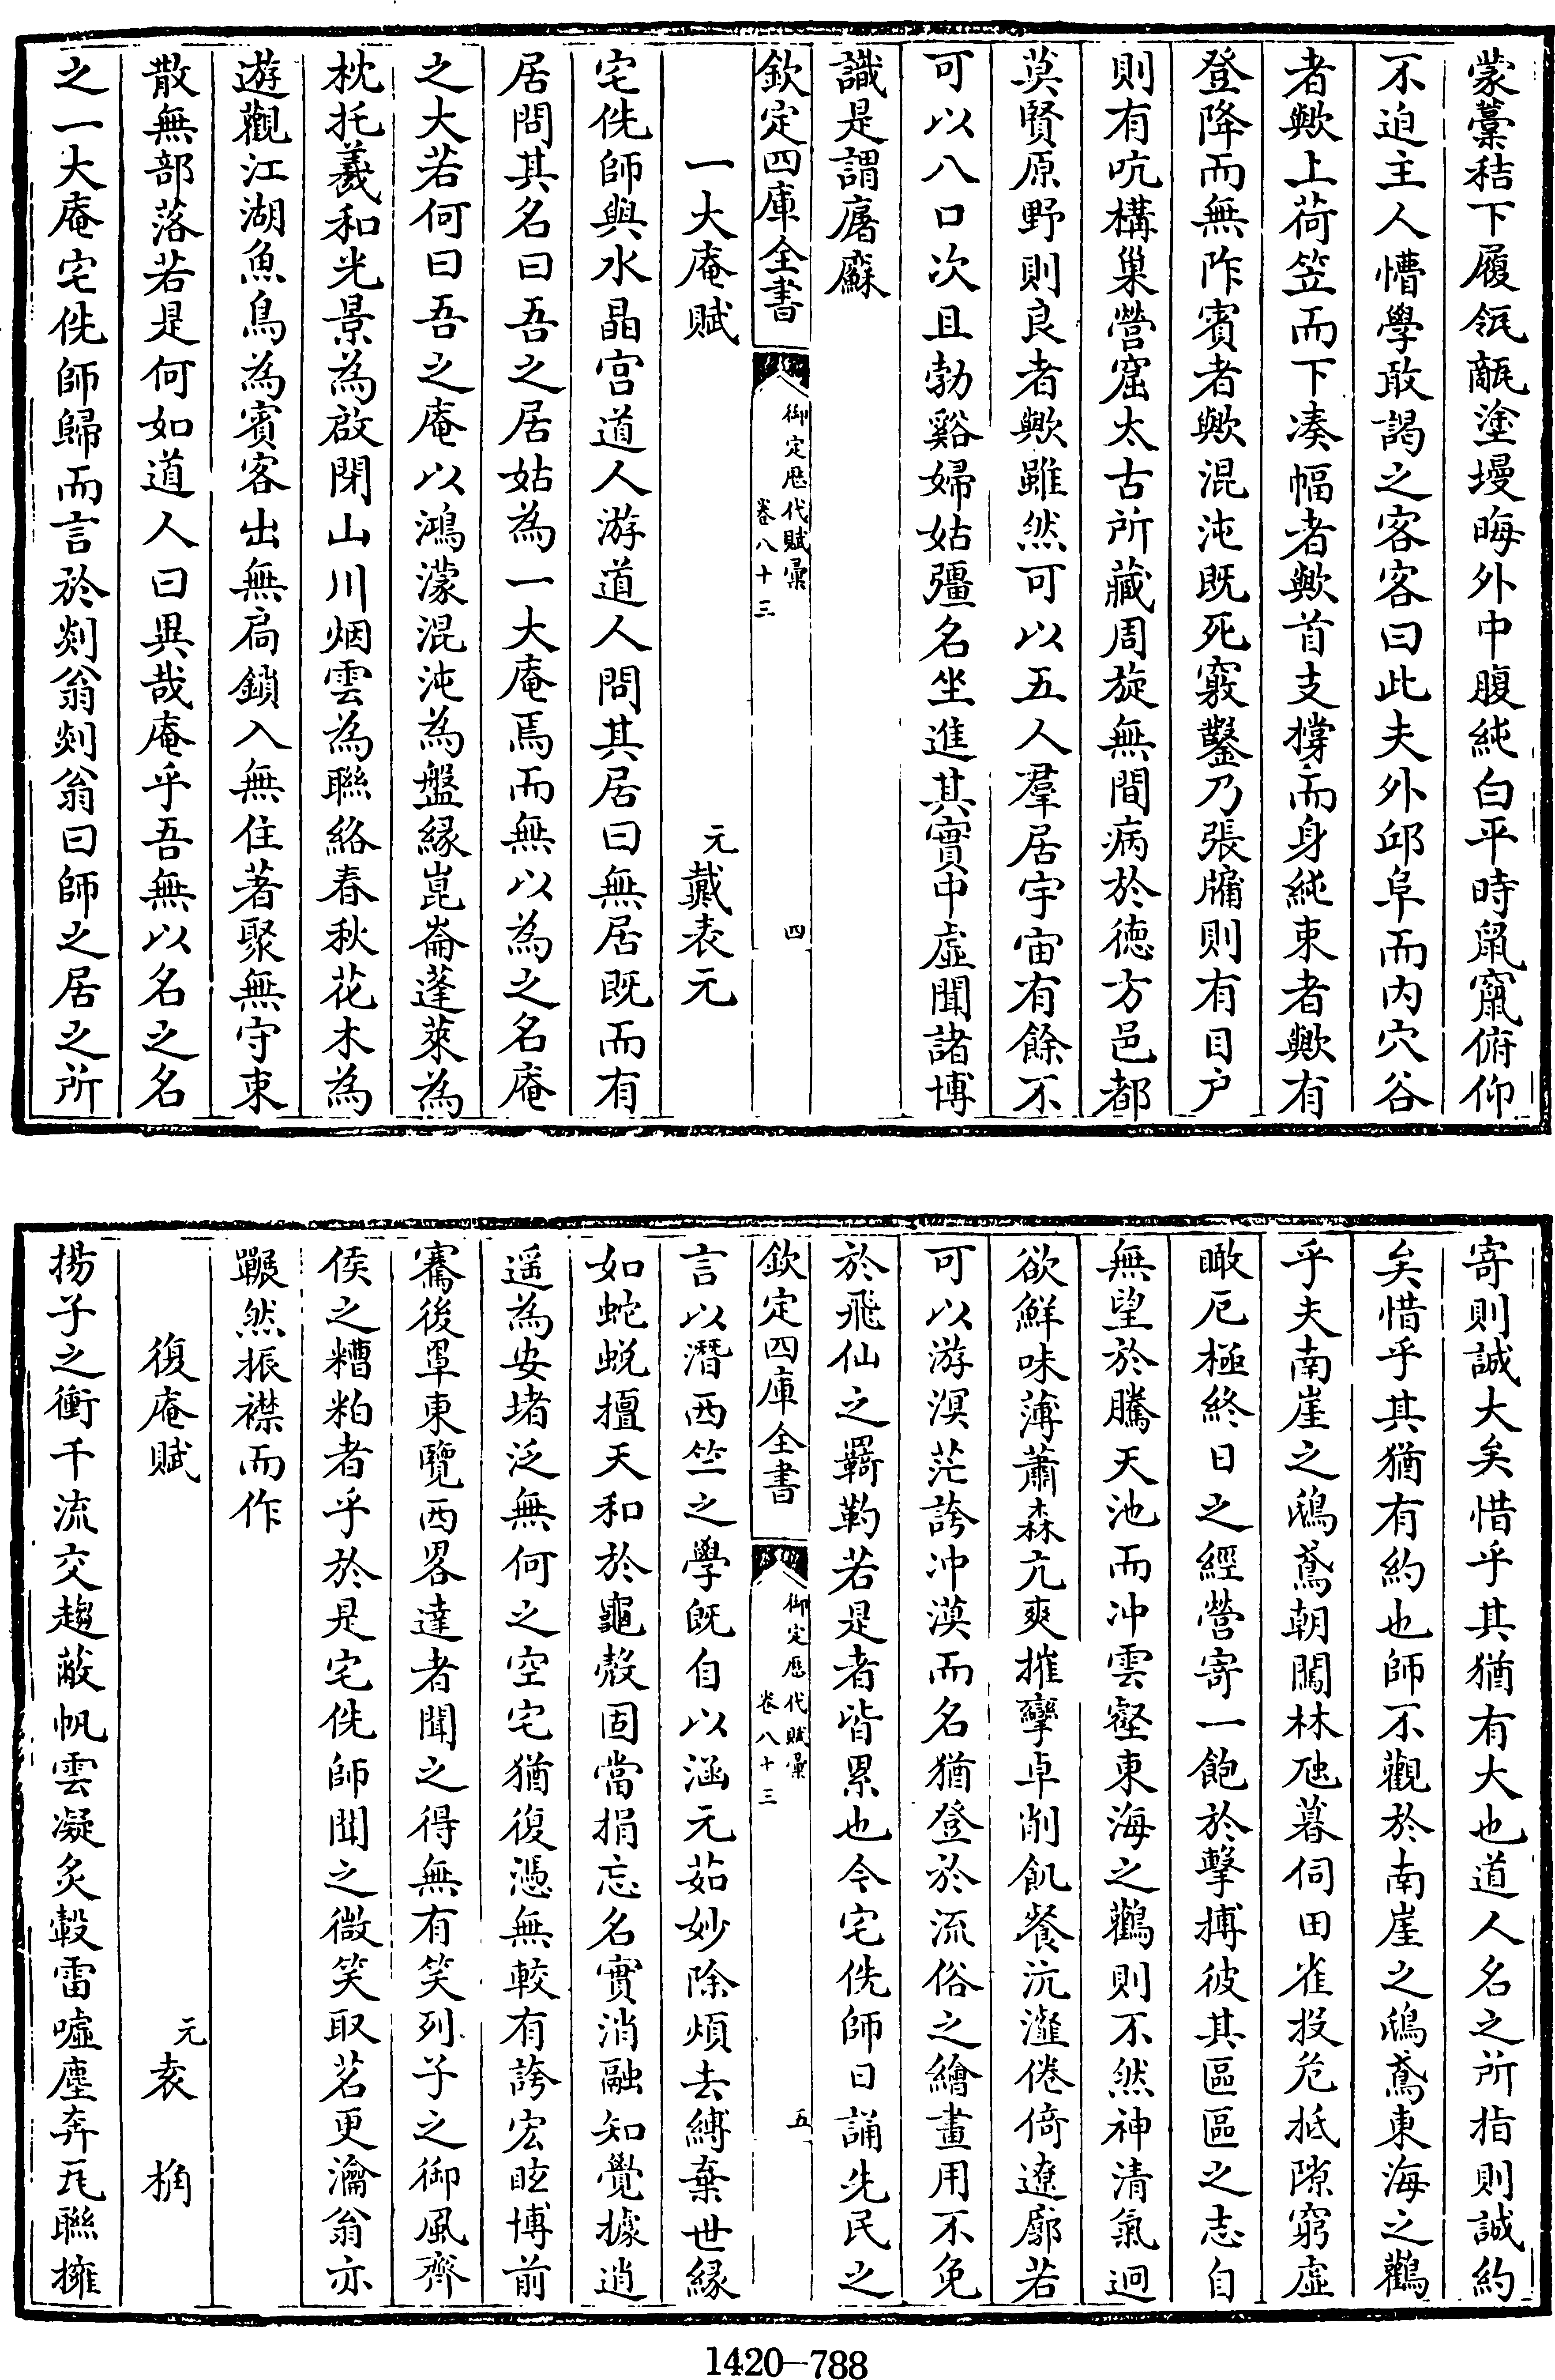 蒙藳秸下履瓴甋塗墁晦外中腹純白平時鼠竄俯仰
不迫主人慒學敢謁之客客曰此夫外邱阜而内穴谷
者歟上荷笠而下凑幅者歟首支撐而身純束者歟有
登降而無阼賓者歟混沌既死竅鑿乃張牖則有目户
則有吭構巢營窟太古所藏周旋無間病於徳方邑都
莫賢原野則良者歟雖然可以五人羣居宇宙有餘不
可以八口次且勃谿婦姑彊名坐進其實中虚聞諸博
識是謂廜㢝
欽定四庫全書
御定歴代賦彙
卷八十三
四
一大庵賦
元戴表元
宅侁師與水晶宫道人游道人問其居曰無居既而有
居問其名曰吾之居姑為一大庵焉而無以為之名庵
之大若何曰吾之庵以鴻濛混沌為盤縁崑崙蓬萊為
枕托羲和光景為啟閉山川烟雲為聯絡春秋花木為
遊觀江湖魚鳥為賓客出無扃鎖入無住著聚無守束
散無部落若是何如道人曰異哉庵乎吾無以名之名
之一大庵宅侁師歸而言於剡翁剡翁曰師之居之所
寄則誠大矣惜乎其猶有大也道人名之所指則誠約
矣惜乎其猶有約也師不觀於南崖之鴟鳶東海之鸛
乎夫南崖之鴟鳶朝闖林虺暮伺田雀投危抵隙窮虚
瞰厄極終日之經營寄一飽於擊搏彼其區區之志自
無望於騰天池而冲雲壑東海之鸛則不然神清氣迥
欲鮮味薄蕭森亢爽摧攣卓削飢餐沆瀣倦倚遼廓若
可以游溟茫誇冲漠而名猶登於流俗之繪畫用不免
於飛仙之羈靮若是者皆累也令宅侁師日誦先民之
欽定四庫全書
御定歴代賦彙
卷八十三
五
言以潛西竺之學既自以涵元茹妙除煩去縛棄世縁
如蛇蜕擅天和於龜殻固當捐忘名實消融知覺據逍
遥為安堵泛無何之空宅猶復憑無較有誇宏眩博前
騫後罩東覽西畧達者聞之得無有笑列子之御風齊
侯之糟粕者乎於是宅侁師聞之微笑取茗更瀹翁亦
囅然振襟而作
復庵賦
元袁桷
揚子之衝千流交趨蔽帆雲凝炙轂雷嘘塵奔瓦聯擁
1420—788